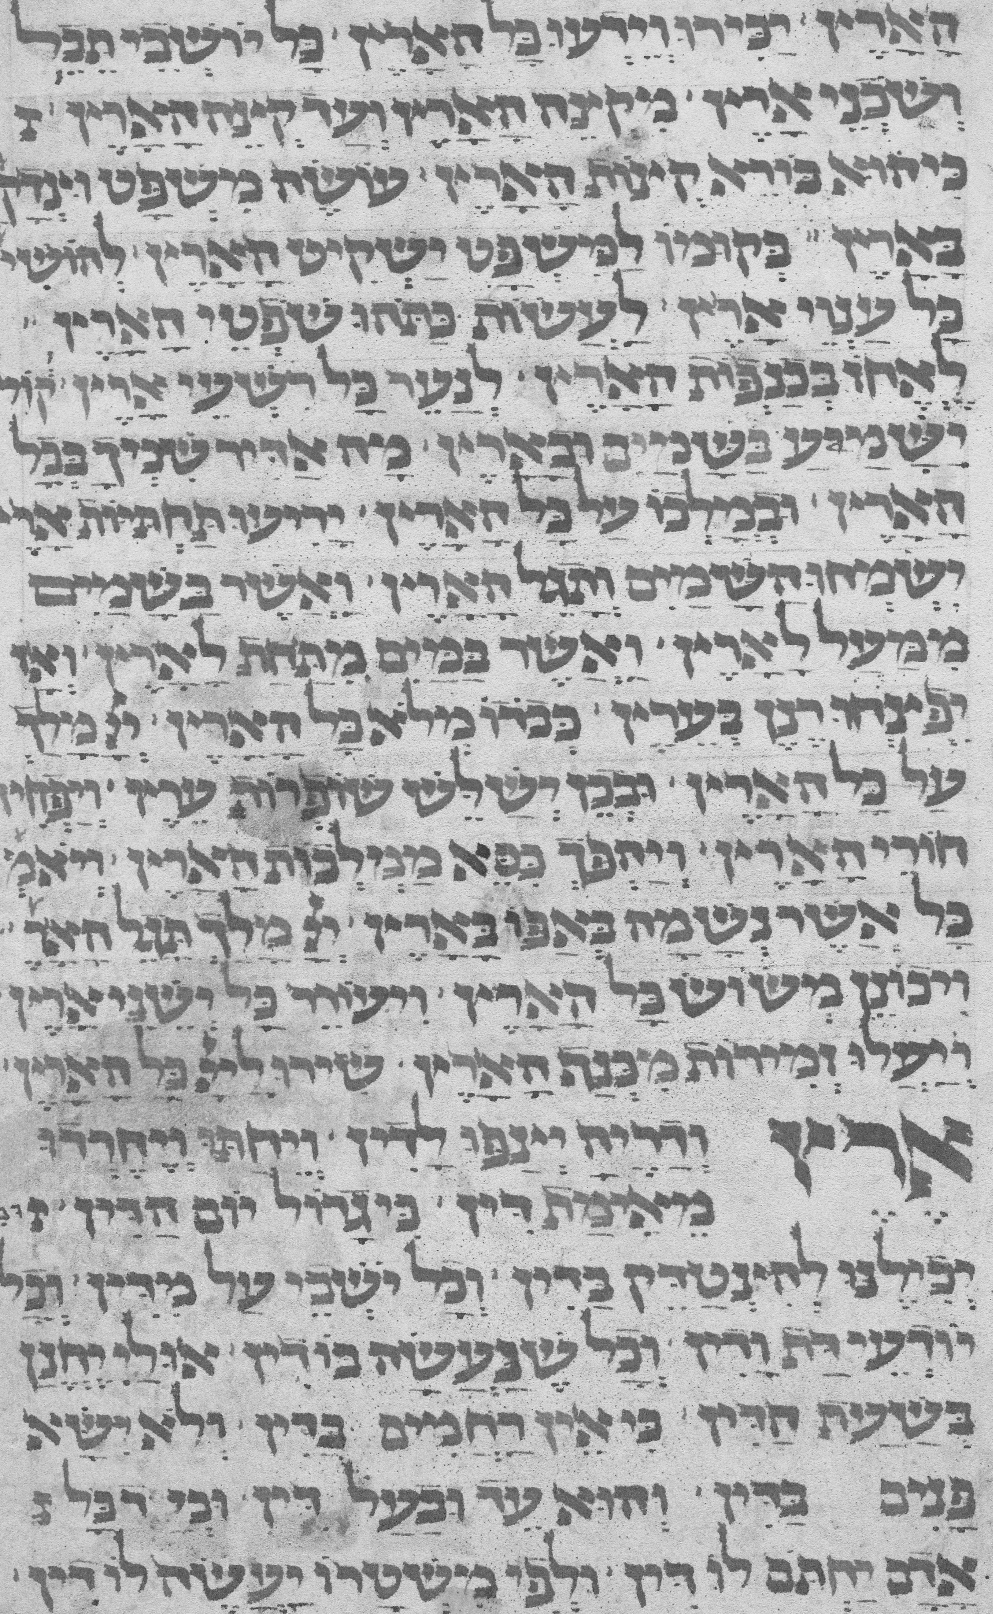 הארץ · יכירו וידעו כל הארץ · כל יושבי תבל
ושכני ארץ · מקצה הארץ ועד קצה הארץ ·
כי הוא בורא קצות הארץ · עושה משפט וצדק
בארץ · בקומו למשפט ישקיט הארץ · להושי
כל ענוי ארץ · לעשות כתהו שפטי הארץ ·
לאחוז בכנפות הארץ · לנער כל רשעי ארץ · קול
ישמיע בשמים ובארץ · מה אדיר שמך בכל
הארץ · ובמלכו על כל הארץ · יריעו תחתיות ארץ
ישמחו השמים ותגל הארץ · ואשר בשמים
ממעל לארץ · ואשר במים מתחת לארץ · ואז
יפצחו רנן בערץ · כבודו מלא כל הארץ · יי מלך
על כל הארץ · ובכן ישלש שופרות ערץ ·
חורי הארץ · ויהפך כסא ממלכות הארץ · ויאמ
כל אשר נשמה באפו בארץ · יי מלך תגל האר
ויכונן משוש כל הארץ · ויעורר כל ישני ארץ
ויעלו זמירות מכנף הארץ · שירו ליי כל הארץ ·
ארץ ורליה יינפו לדין · ויחתו ויחרדו
מאימת דין · כי גדול יום הדין ·
יכילנו להצטדק בדין · וכל יושבי על מדין · וכל
יודעי דת ודין · וכל שנעשה בו דין · אולי יחנן
בשעת הדין · כי אין רחמים בדין · ולא ישא
פנים בדין · והוא עד ובעל דין · וכי כל
אדם יחתם לו דין · ולפי משטרו יעשה לו דין ·